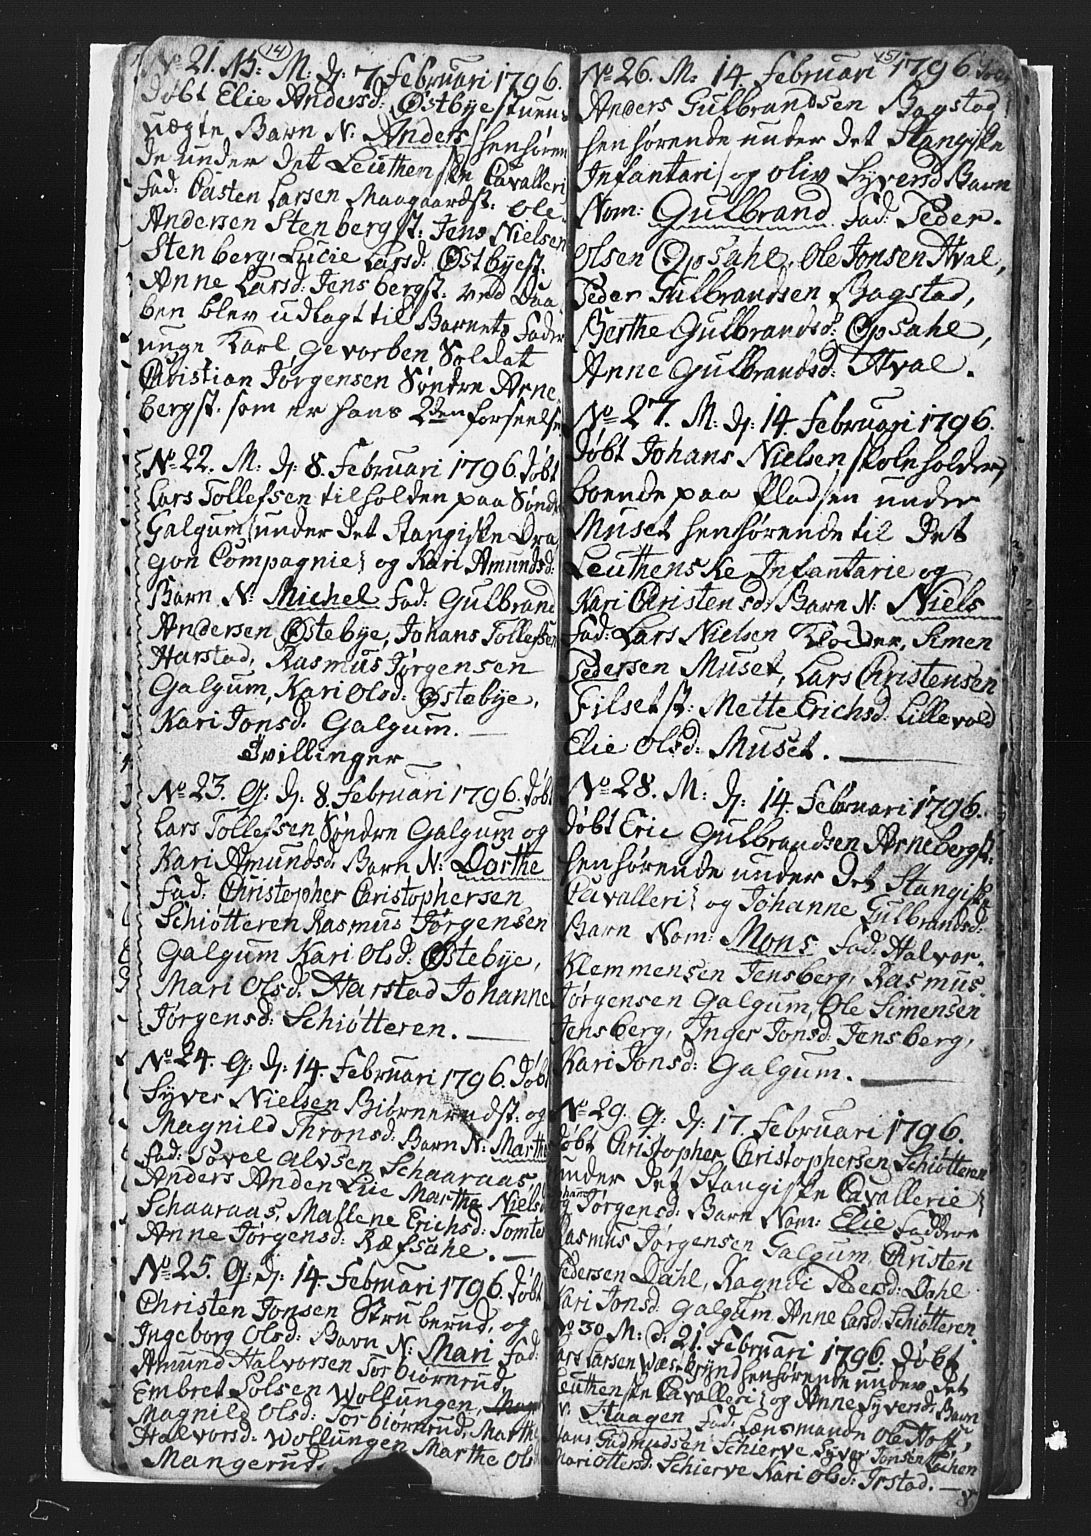 14
No 21. NB: M: Dj: 7 Februari 1796.
Døbt Elie Andersd: Østbyestuens
uægte Barn N: Anders henhøren
de under det Leuthenske Cavalleri
fad: Casten Larsen Maagaardst: Ole
Andersen Stenbergst: Jens Nielsen
Stenberg, Lucie Larsd: Østbyest:
Anne Larsd: Jensbergst: ved Daa
ben blev udlagt til Barnets fader
unge Karl, gevorben Soldat
Christian Jørgensen Søndre Arne
bergst. som er hans 2den forseelse
No 22. M: Dj 8. Februari 1796. døbt
Lars Tollefsen tilholden paa Søndr
Galgum under det Stangiske Dra
gon Compagnie og Kari Amundsd:
Barn N: Michel fad: Gulbrand
Andersen Østebye, Johans Tollefsen
Harstad, Rasmus Jørgensen
Galgum, Kari Olsd: Østebye,
Kari Jonsd: Galgum.
Tvillinger
No 23. Q: Dj: 8. Februari 1796. døbt
Lars Tollefsen Søndre Galgum og
Kari Amundsd: Barn N: Dorthe
fad: Christopher Christophersen
Schiøtteren Rasmus Jørgensen
Galgum Kari Olsd: Østebye,
Mari Olsd: Harstad Johanne
Jørgensd: Schiøtteren.
No 24. Q: Dj: 14 Februari 1796. Døbt
Syver Nielsen Biørnerudst: og
Magnild Thronsd: Barn N: Marthe
fad: Povel Alvsen Schaaraas,
Anders Anden Lie Marthe Nielsd
Schaaraas, Mallene Erichsd: Tomter
Anne Jørgensd: Ræfsahl.
No 25. Q: Dj: 14. Februari 1796. døbt
Christen Jonsen Struberud, og
Ingeborg Olsd: Barn N: Mari fad:
Amund Halvorsen Torbiørnrud
Embret Polsen Wollungen,
Magnild Olsd: Torbiørnrud, Marthe
Halvorsd: Wollungen Marthe Olsd
Mangerud.
15
No 26. M: 14 Februari 1796 Døbt
Anders Gulbrandsen Bagstad
henhørende under det Stangiske
Infantari og Oliv Syversd Barn
Nom: Gulbrand fad: Peder
Olsen Opsahl, Ole Jonsen Hval,
Peder Gulbrandsen Bagstad,
Berthe Gulbrandsd: Opsahl,
Anne Gulbrandsd: Hval.
No 27. M: Dj: 14 Februari 1796.
døbt Johans Nielsen skoleholder,
boende paa Pladsen under
Muset henhørende til det
Leuthenske Infantarie og
Kari Christensd: Barn N: Niels
fad: Lars Nielsen Kloder, Simen
Pedersen Muset, Lars Christensen
Filsetst: Mette Erichsd: Lillevold
Elie Olsd: Muset.
No 28. M: Dj: 14. Februari 1796.
døbt Eric Gulbrandsen Arnebergst:
henhørende under det Stangiske
Cavalleri og Johanne Gulbrandsd:
Barn Nom: Mons fad: Halvor
Klemmensen Jensberg, Rasmus
Jørgensen Galgum, Ole Simensen
Jensberg, Inger Jonsd: Jensberg,
Kari Jonsd: Galgum.
No 29. Q: Dj: 17. Februari 1796.
døbt Christopher Christophersen Schiøtteren
under det Stangiske Cavallerie
og Johanne Jørgensd: Barn Nom: Elie faddere
Rasmus Jørgensen Galgum, Christen
Pedersen Dahl, Ragndi Pedersd: Dahl
Kari Jonsd: Galgum Anne Larsd: Schiøtteren.
No 30 M: D: 21. Februari 1796. døbt
Lars Larsen Wæsbrynd henhørende under det
Leuthenske Cavalleri og Anne Syversd: Barn
N: Haagen fad: Lænsmand Ole Toft,
Hans Gudmudsen Schierve Syver Jonsen Løchen
Mari Ottersd: Schierve Kari Olsd: Irstad.